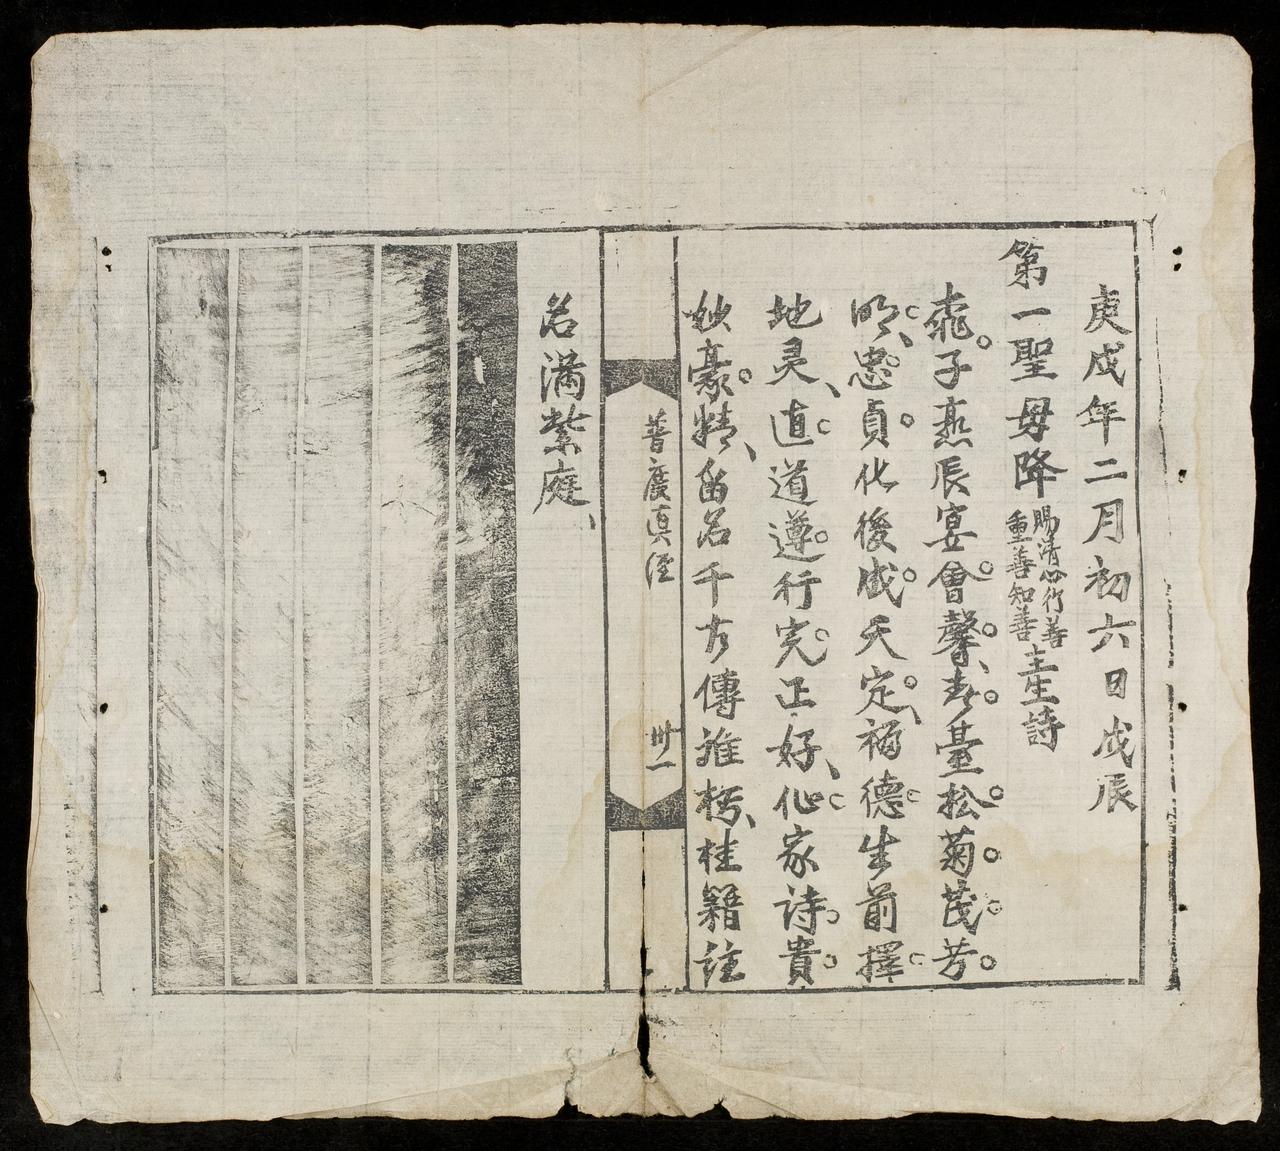 庚戌年二月初六日戊辰
第一聖毋降賜清心行善重善知善主生詩
子燕辰宴會馨春臺松菊茂芳
明忠貞化後成天定福德生前擇
地灵直道遵行完正好化家诗貴
妙豪精留名千古傳誰朽桂籍註
普度真経
卅一
名滿紫庭